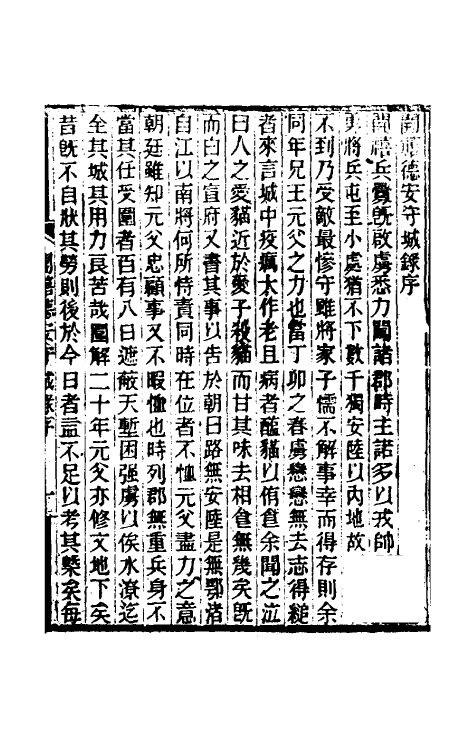 開禧德安守城錄序
開禧兵釁既啟虜悉力闖諸郡時主諾多以戎帥
將兵屯至小處猶不下數千獨安陸以內地故
不到乃受敵最慘守雖將家子懦不解事幸而得存則余
同年兄王元父之力也當丁卯之春虜戀戀無去志得縋
者來言城中疫癘大作老且病者醢貓以侑食余聞之泣
曰人之愛貓近於愛子殺貓而甘其味去相食無幾矣既
而白之宣府又書其事以告於朝曰路無安陸是無鄂渚
自江以南將何所恃責同時在位者不恤元父盡力之意
朝廷雖知元父忠顧事又不暇恤也時列郡無重兵身不
當其任受圍者百有八日遮蔽天塹困强虜以俟水潦迄
全其城其用力良苦哉圍解二十年元父亦修文地下矣
昔既不自狀其勞則後於今日者諒不足以考其槩矣每
開禧德安守城錄序 一